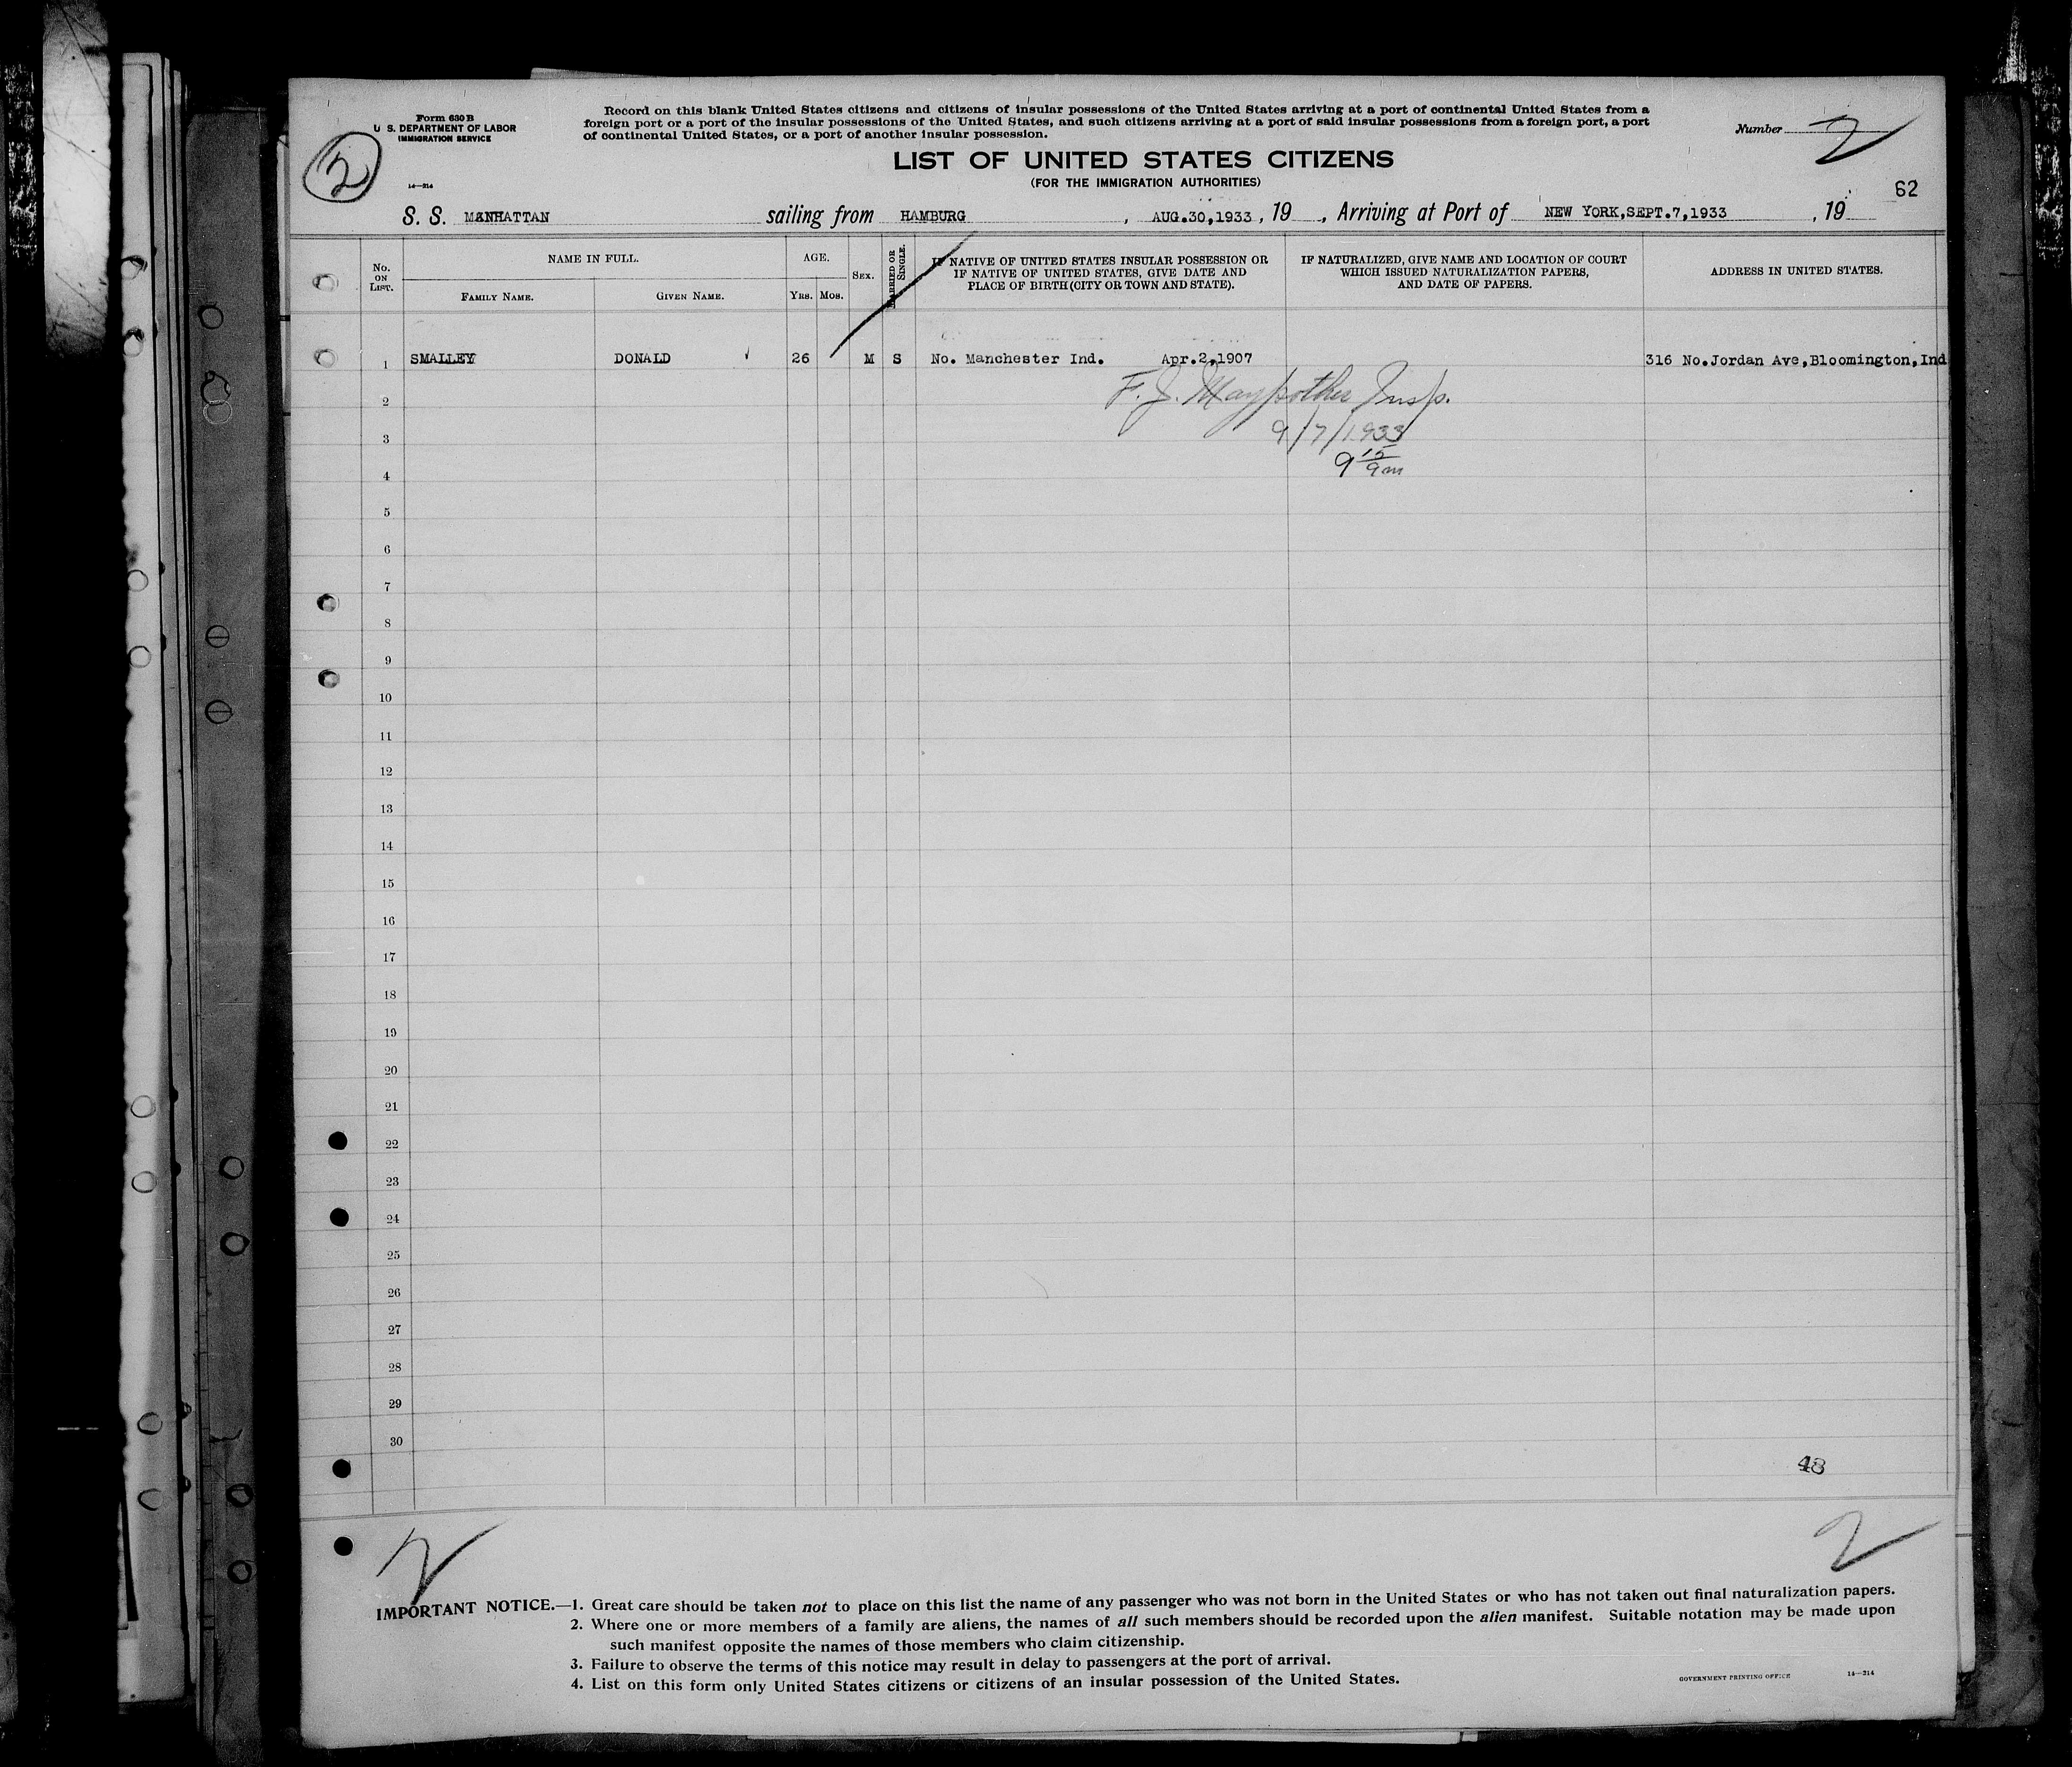 Form 630 B
U. S. DEPARTMENT OF LABOR
IMMIGRATION SERVICE
14—214
2
Record on this blank United States citizens and citizens of insular possessions of the United States arriving at a port of continental United States from a
foreign port or a port of the insular possessions of the United States, and such citizens arriving at a port of said insular possessions from a foreign port, a port
of continental United States, or a port of another insular possession.
Number 2
LIST OF UNITED STATES CITIZENS
(FOR THE IMMIGRATION AUTHORITIES)
62
S. S. MANHATTAN sailing from HAMBURG , AUG.30,1933 , 19 , Arriving at Port of NEW YORK,SEPT.7,1933 , 19
No. ON LIST.
NAME IN FULL.
FAMILY NAME. GIVEN NAME.
AGE.
YRS. MOS.
SEX.
MARRIED OR SINGLE.
IF NATIVE OF UNITED STATES INSULAR POSSESSION OR
IF NATIVE OF UNITED STATES, GIVE DATE AND
PLACE OF BIRTH (CITY OR TOWN AND STATE).
IF NATURALIZED, GIVE NAME AND LOCATION OF COURT
WHICH ISSUED NATURALIZATION PAPERS,
AND DATE OF PAPERS.
ADDRESS IN UNITED STATES.
1 SMALLEY DONALD 26 M S No. Manchester Ind. Apr.2,1907 316 No.Jordan Ave,Bloomington,Ind
2 F. J. Maypother Insp.
3 9/7/1933
4 9 15
5
6
7
8
9
10
11
12
13
14
15
16
17
18
19
20
21
22
23
24
25
26
27
28
29
30
48
2 2
IMPORTANT NOTICE.—1. Great care should be taken not to place on this list the name of any passenger who was not born in the United States or who has not taken out final naturalization papers.
2. Where one or more members of a family are aliens, the names of all such members should be recorded upon the alien manifest. Suitable notation may be made upon
such manifest opposite the names of those members who claim citizenship.
3. Failure to observe the terms of this notice may result in delay to passengers at the port of arrival.
4. List on this form only United States citizens or citizens of an insular possession of the United States.
GOVERNMENT PRINTING OFFICE 14—214